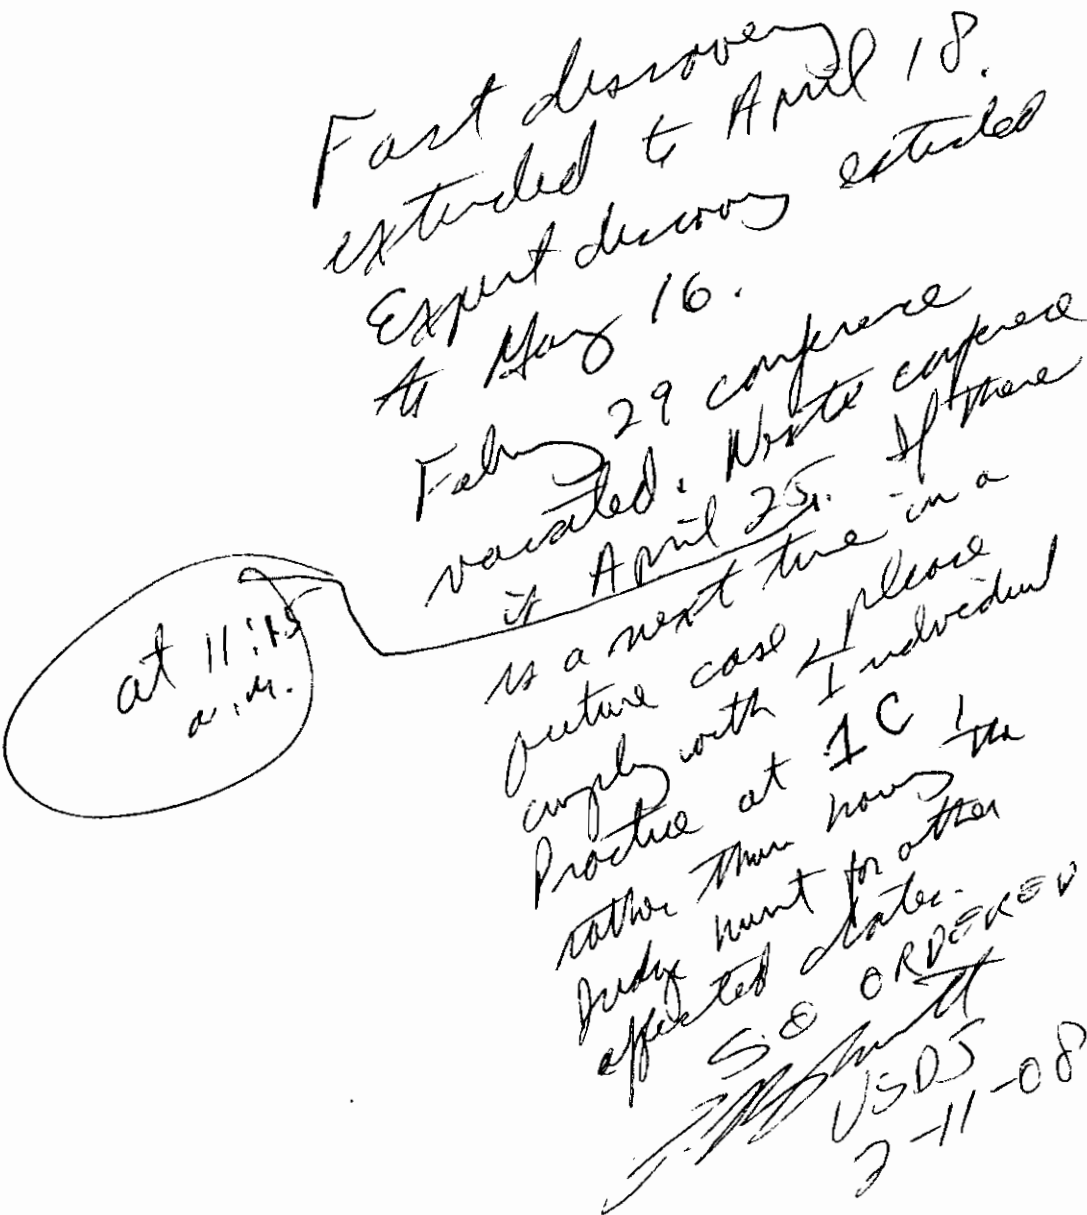 Fact discovery
extended to April 18.
Expert discovery extended
to May 16.
February 29 conference
vacated. Next conference
is April 25. If there
at 11:15
a.m.
is a next time in a
future case, please
comply with Individual
Practice at 1C
rather than having the
Judge hunt for other
affected dates.
SO ORDERED
USDJ
2-11-08